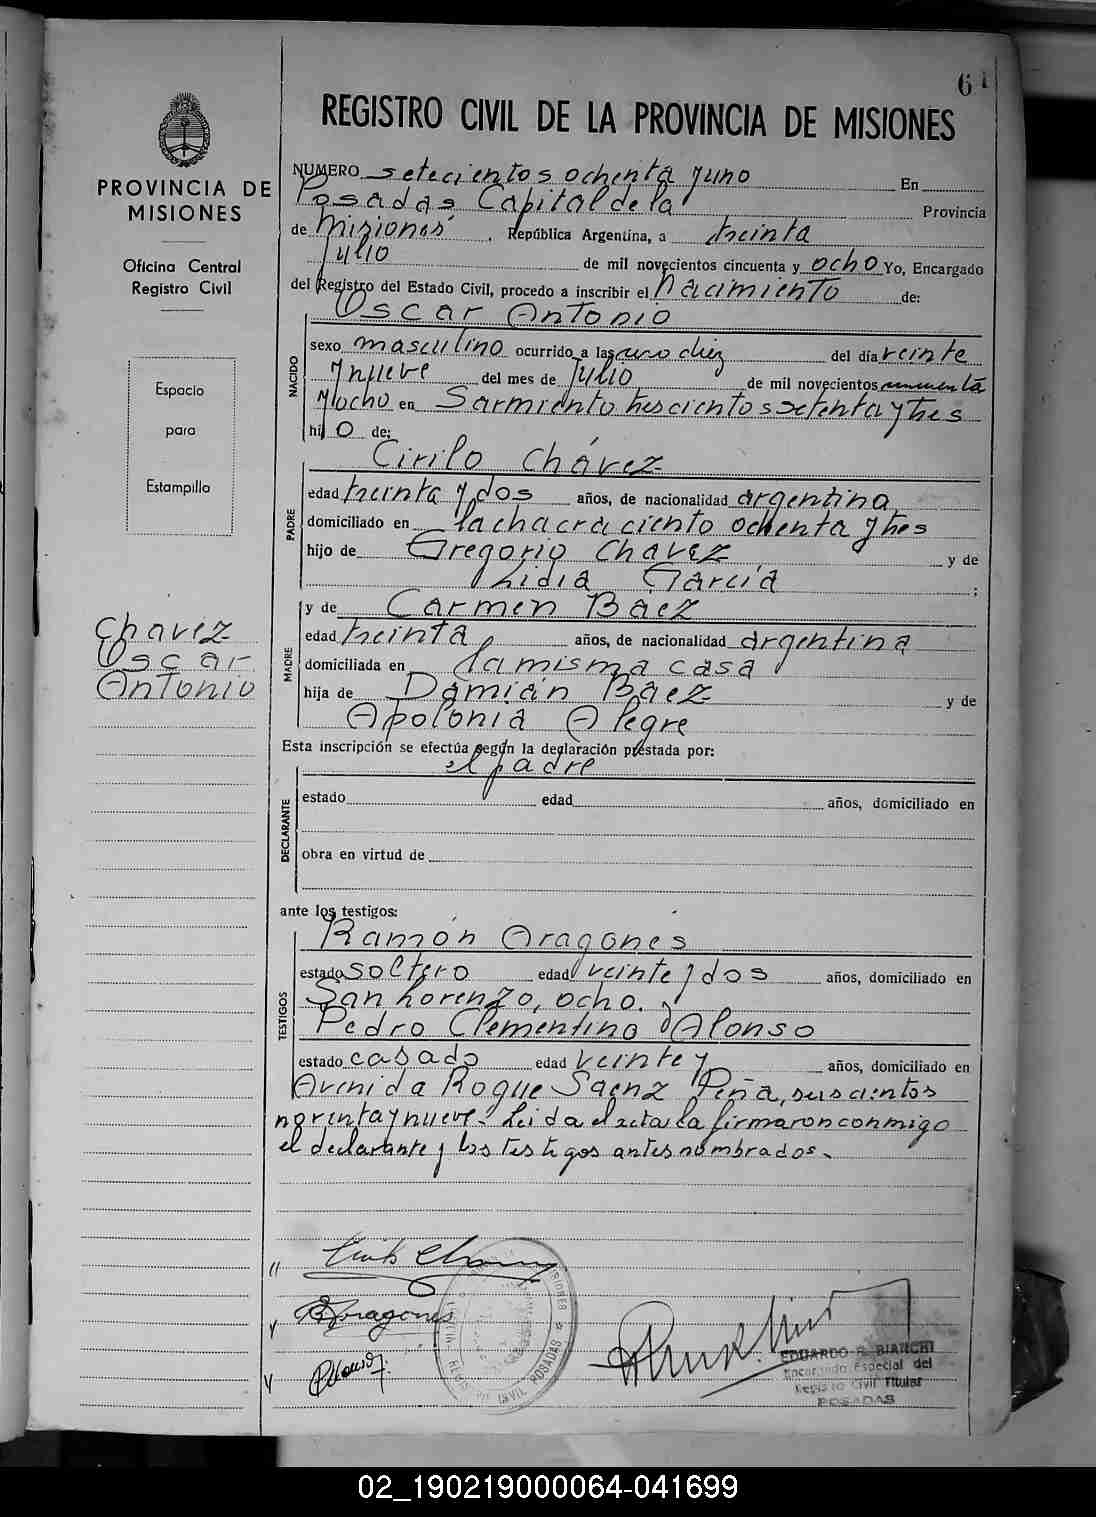 61
REGISTRO CIVIL DE LA PROVINCIA DE MISIONES
PROVINCIA DE
MISIONES
Oficina Central
Registro Civil
Espacio
para
Estampilla
Chavez
Oscar
Antonio
NUMERO setecientos ochenta y uno En
Posadas Capital de la Provincia
de Misiones, República Argentina, a treinta
Julio de mil novecientos cincuenta y ocho Yo, Encargado
del Registro del Estado Civil, procedo a inscribir el nacimiento de:
Oscar Antonio
NACIDO
sexo masculino ocurrido a las diez del día veinte
y nueve del mes de Julio de mil novecientos
y ocho en Sarmiento trescientos setenta y tres
hijo de:
Cirilo Chávez
PADRE
edad treinta y dos años, de nacionalidad argentina
domiciliado en la chacra ciento ochenta y tres
hijo de Gregorio Chavez y de
Lidia García ;
y de Carmen Baez
MADRE
edad treinta, años, de nacionalidad argentina
domiciliada en la misma casa
hija de Damián Báez y de
Apolonia Alegre
Esta inscripción se efectúa según la declaración prestada por:
el padre
DECLARANTE
estado edad años, domiciliado en
obra en virtud de
ante los testigos:
Ramón Aragonés
TESTIGOS
estado soltero edad veinte y dos años, domiciliado en
San Lorenzo, ocho. y
Pedro Clementino D'Alonso
estado casado edad veinte y años, domiciliado en
Avenida Roque Saenz Peña, seiscientos
noventa y nueve. Leida el acta la firmaron conmigo
el declarante y los testigos antes nombrados.
Aragonés
EDUARDO R. BIANCHI
Encargado Especial del
Registro Civil Titular
POSADAS
02_190219000064-041699